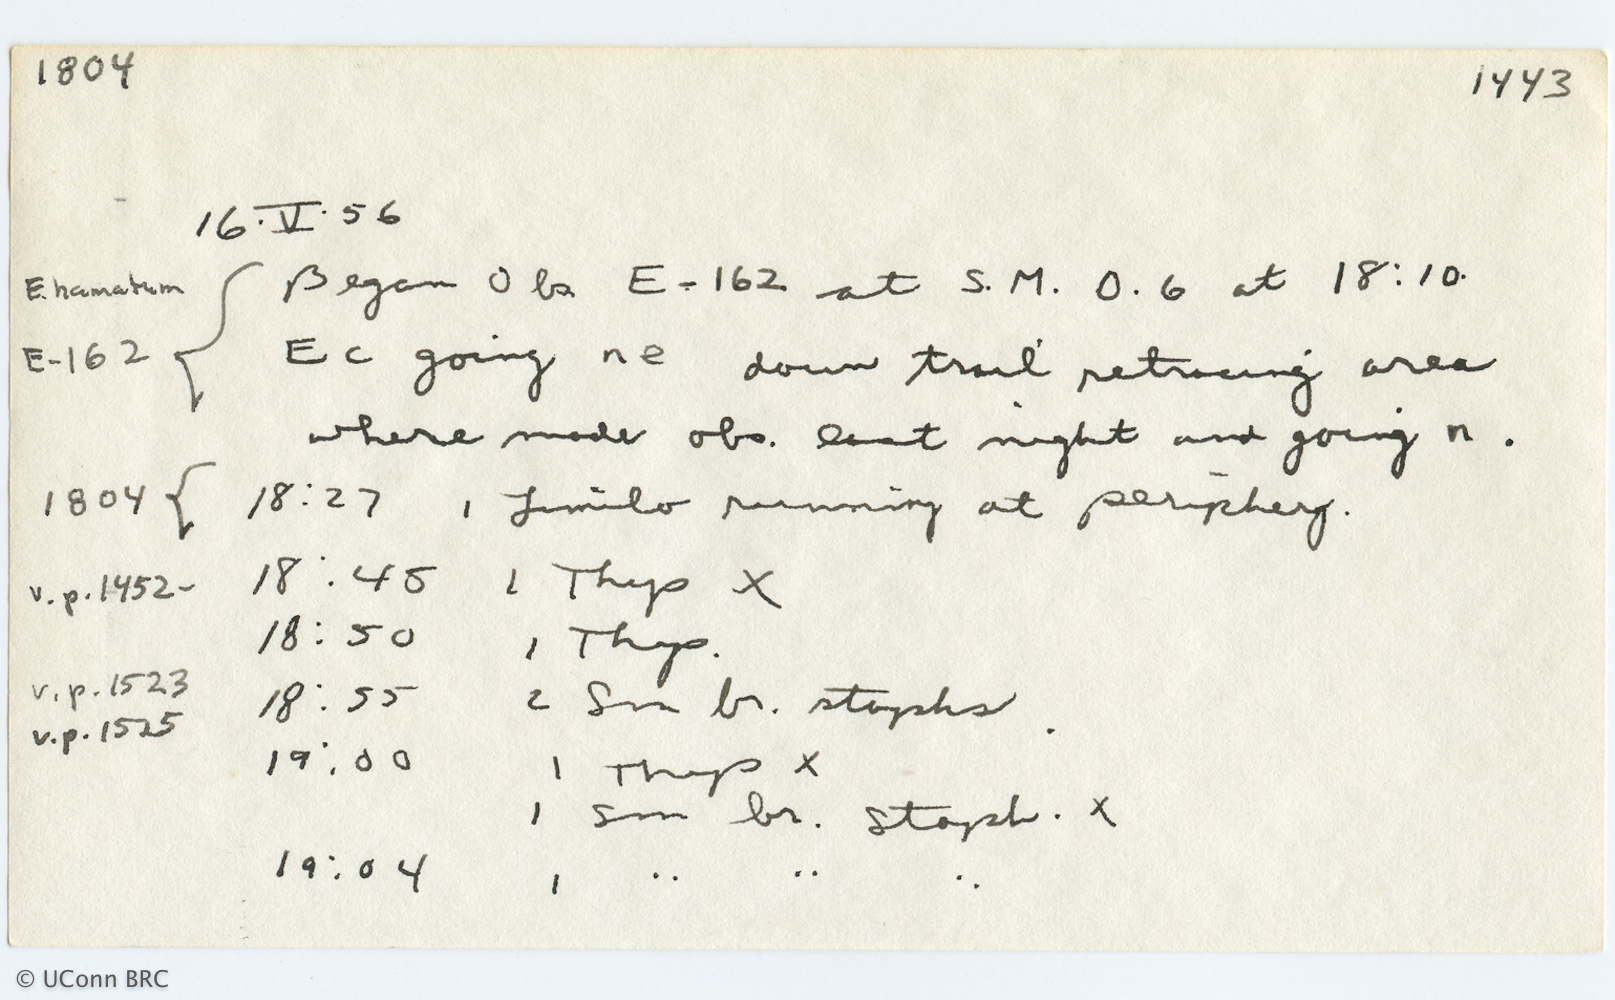 1804 1443
16·V·56
E. hamatum { Began Obs E-162 at S. M. 0.6 at 18:10.
E-162 Ec going ne down trail retracing area
where made obs. last night and going n.
1804 { 18:27 1 Limulo running at periphery.
v.p. 1452- 18:45 1 Thyp X
18:50 1 Thyp.
v.p. 1523 18:55 2 Sm br. staphs.
v.p. 1525
19:00 1 Thyp X
1 Sm br. Staph. X
19:04 1 " " "
© UConn BRC